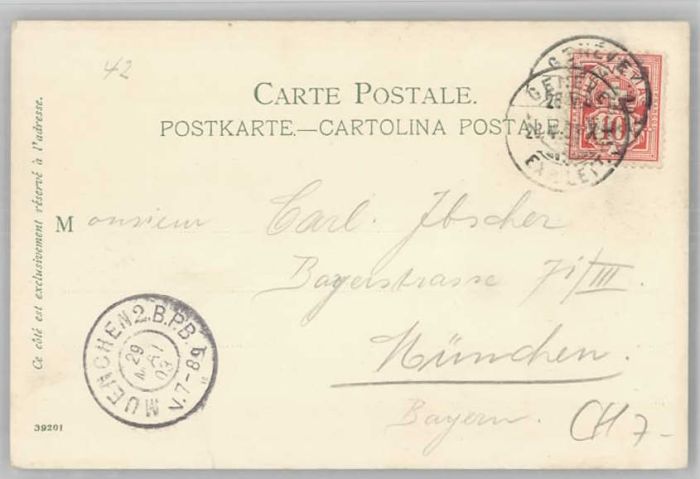 42
CARTE POSTALE.
POSTKARTE.—CARTOLINA POSTALE
Ce côté est exclusivement réservé à l'adresse.
Monsieur Carl Ibscher
Bayerstrasse 71/III
München.
Bayern.
MUENCHEN 2.B.P.B.
29
MAI
03
V.7-8
GENÈVE
EXP. LETT.
10
39201
CH 7-